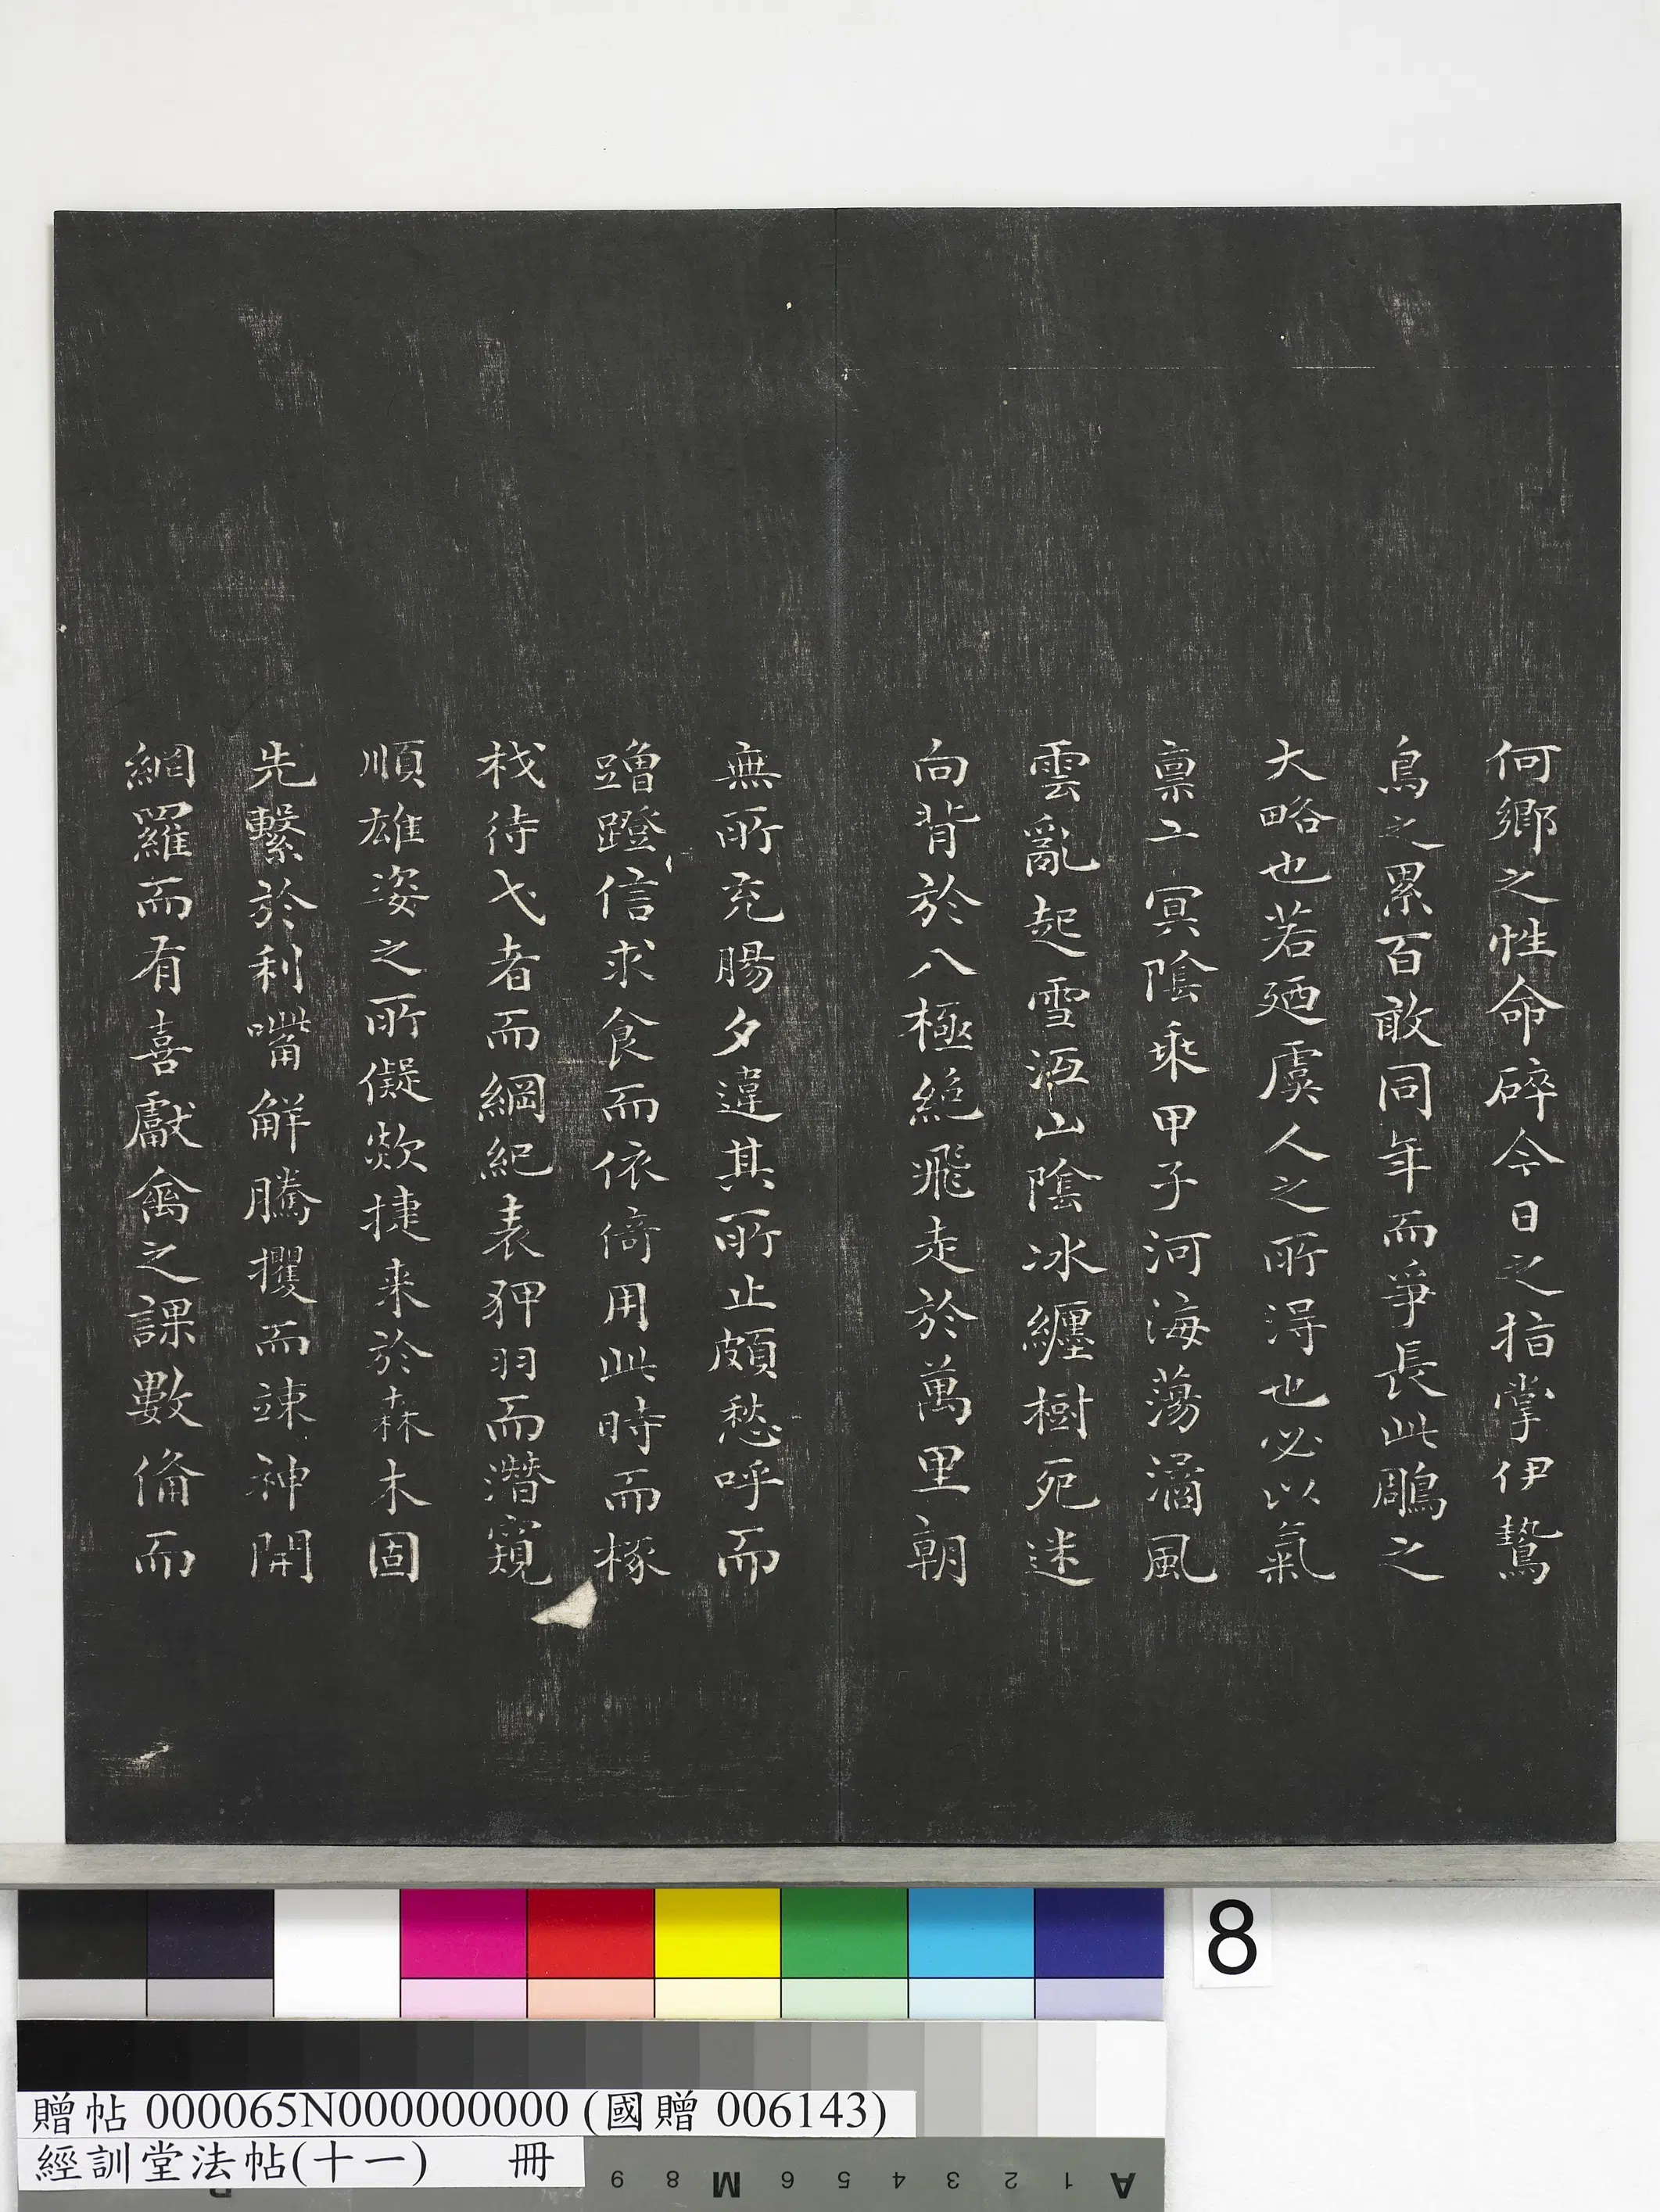 何鄉之性命碎今日之指掌伊鷙
鳥之累百敢同年而爭長此鵰之
大略也若廼虞人之所得也必以氣
禀玄冥陰乘甲子河海蕩潏風
雲亂起雪沍山陰冰纏樹死迷
向背於八極絕飛走於萬里朝
無所充腸夕違其所止頗愁呼而
蹭蹬信求食而依倚用此時而椓
杙待弋者而綱紀表狎羽而潛窺
順雄姿之所儗欻捷来於森木固
先繫於利嘴解騰攫而竦神開
網羅而有喜獻禽之課數備而
8
贈帖 000065N000000000 (國贈 006143)
經訓堂法帖(十一) 冊
A 1 2 3 4 5 6 M 8 9